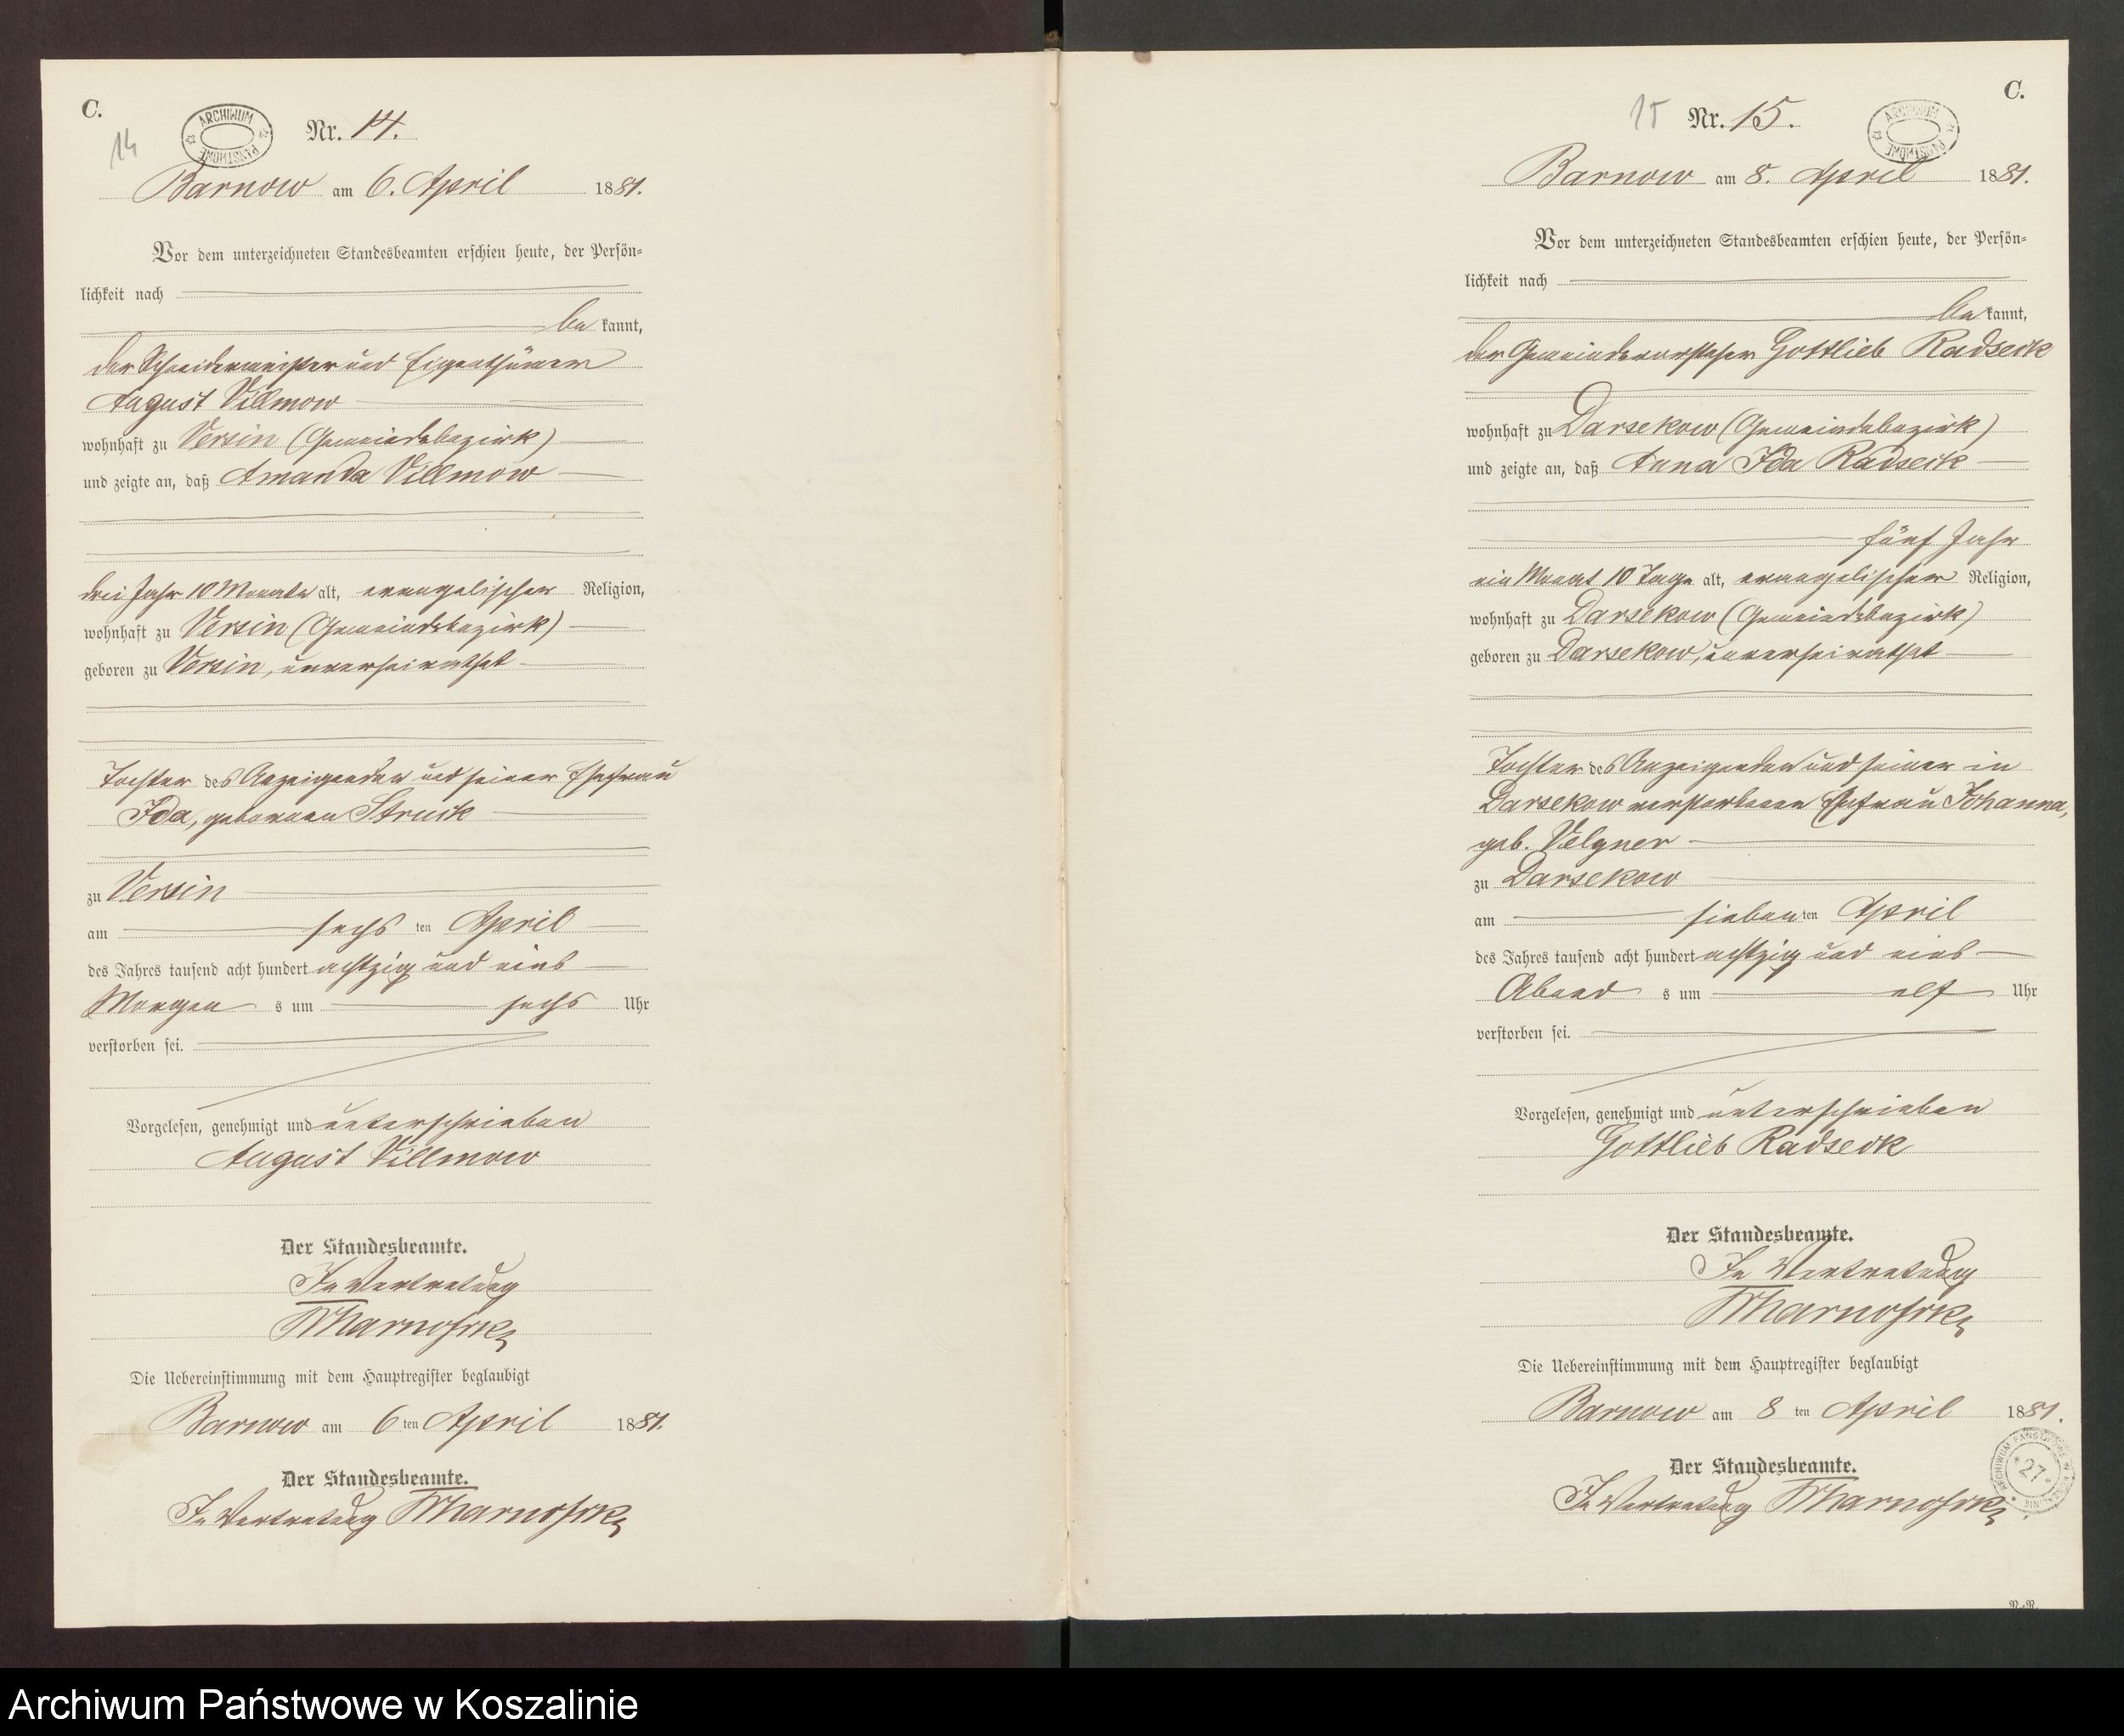 C.
14
ARCHIWUM PAŃSTWOWE
Nr. 14.
Barnow am 6. April 1881.
Vor dem unterzeichneten Standesbeamten erschien heute, der Persön-
lichkeit nach
be kannt,
der Schneidermeister und Eigenthümer
August Villmow
wohnhaft zu Versin (Gemeindebezirk)
und zeigte an, daß Amanda Villmow
drei Jahr 10 Monate alt, evangelischer Religion,
wohnhaft zu Versin (Gemeindebezirk)
geboren zu Versin, unverheirathet
Tochter des Anzeigenden und seiner Ehefrau
Ida, geborenen Struck
zu Versin
am sechs ten April
des Jahres tausend acht hundert achtzig und eins
Morgen s um sechs Uhr
verstorben sei.
Vorgelesen, genehmigt und unterschrieben
August Villmow
Der Standesbeamte.
In Vertretung
Die Uebereinstimmung mit dem Hauptregister beglaubigt
Barnow am 6 ten April 1881.
Der Standesbeamte.
In Vertretung
C.
15
Nr. 15.
ARCHIWUM PAŃSTWOWE
Barnow am 8. April 1881.
Vor dem unterzeichneten Standesbeamten erschien heute, der Persön-
lichkeit nach
be kannt,
der Gemeindevorsteher Gottlieb Radseck
wohnhaft zu Darsekow (Gemeindebezirk)
und zeigte an, daß Anna Ida Radseck
fünf Jahr
ein Monat 10 Tage alt, evangelischer Religion,
wohnhaft zu Darsekow (Gemeindebezirk)
geboren zu Darsekow, unverheirathet
Tochter des Anzeigenden und seiner in
Darsekow verstorbenen Ehefrau Johanna,
geb. Velgner
zu Darsekow
am sieben ten April
des Jahres tausend acht hundert achtzig und eins
Abend s um elf Uhr
verstorben sei.
Vorgelesen, genehmigt und unterschrieben
Gottlieb Radseck
Der Standesbeamte.
In Vertretung
Die Uebereinstimmung mit dem Hauptregister beglaubigt
Barnow am 8 ten April 1881.
Der Standesbeamte.
In Vertretung
ARCHIWUM PAŃSTWOWE W KOSZALINIE
27
Archiwum Państwowe w Koszalinie